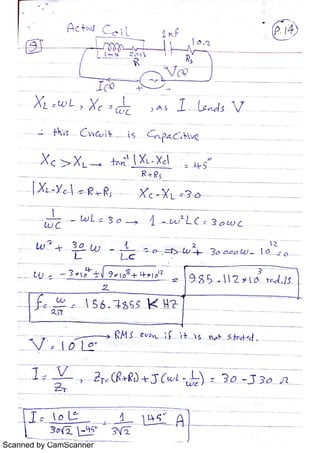 P.14
Actual Coil
9
1mH 20Ω
R
1nF
10Ω
Rs
V(t)
I(t)
+ -
XL = wL , Xc = 1/wC , as I Leads V
∴ this Circuit is Capacitive
Xc > XL → tan⁻¹ |XL-Xc| / R+Rs = 45°
|XL-Xc| = R+Rs Xc-XL = 30
1/wC - wL = 30 → 1 - w²LC = 30wC
w² + 30/L w - 1/LC = 0 ⇒ w² + 30000w - 10¹² = 0
w = -3*10⁴ ± √9*10⁸+4*10¹² / 2 = 985.112*10³ rad/s
f = w/2π = 156.7855 KHZ
V = 10∠0° → RMS even if it is not stated.
I = V/ZT , ZT = (R+Rs) + J(wL - 1/wC) = 30 - J30 Ω
I = 10∠0 / 30√2 ∠-45° = 1/3√2 ∠45° A
Scanned by CamScanner